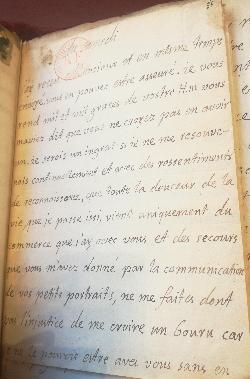 recen
encieux et en mesme temps
engagé, vous en pouvez estre asseuré. ie vous
rend mil et mil graces de vostre
m'aviez dit que vous ne croyez pas en avoir
un. ie serois un ingrat si ie ne me resouve-
nois continuellement et avec des ressentiments
de reconnoissance, que toute la douceur de la
vie que ie passe issi, vient uniquement du
commerce que i'ay avec vous et des secours
que vous m'avez donné par la communication
de vos petits portraits, ne me faites dont
pas l'iniustice de me croire un bouru car
ie ne le pouvois estre avec vous sans en